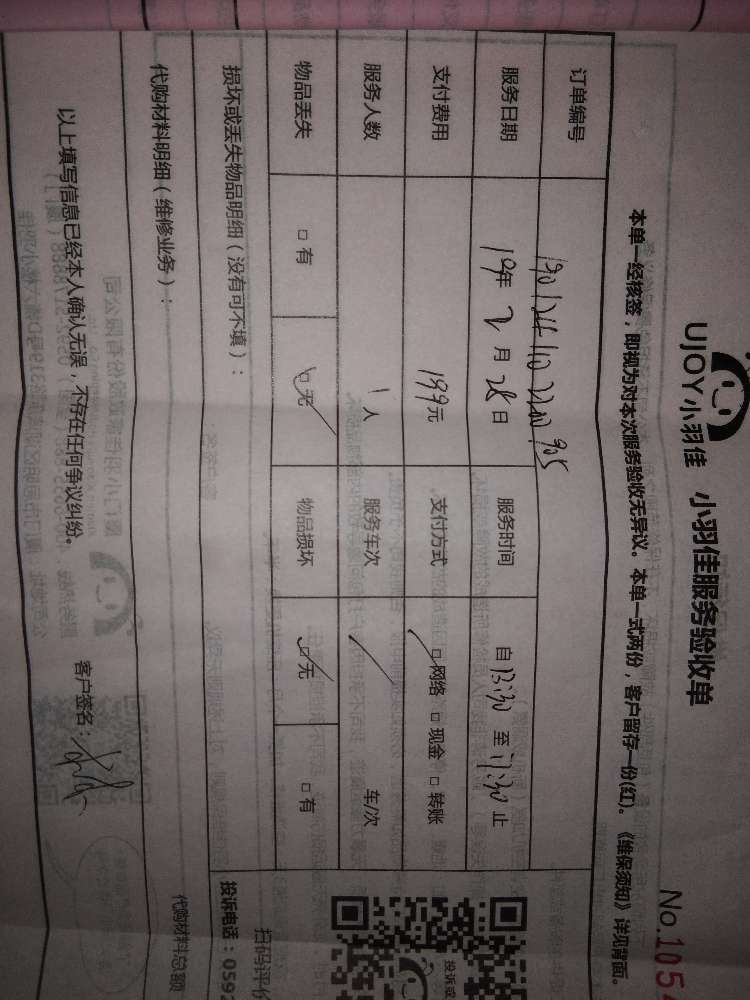 UJOY小羽佳 小羽佳服务验收单
No.105
本单一经核签，即视为对本次服务验收无异议。本单一式两份，客户留存一份(红)。《维保须知》详见背面。
订单编号
服务日期 19年 2月 28日 服务时间 自 13:30 至 17:30 止
支付费用 199元 支付方式 □网络 □现金 □转账
服务人数 1人 服务车次 车/次
物品丢失 □有 □无 物品损坏 □无 □有
损坏或丢失物品明细（没有可不填）：
投诉电话：059
代购材料明细（维修业务）：
代购材料总额
以上填写信息已经本人确认无误，不存在任何争议纠纷。
客户签名：
扫码评价
投诉或